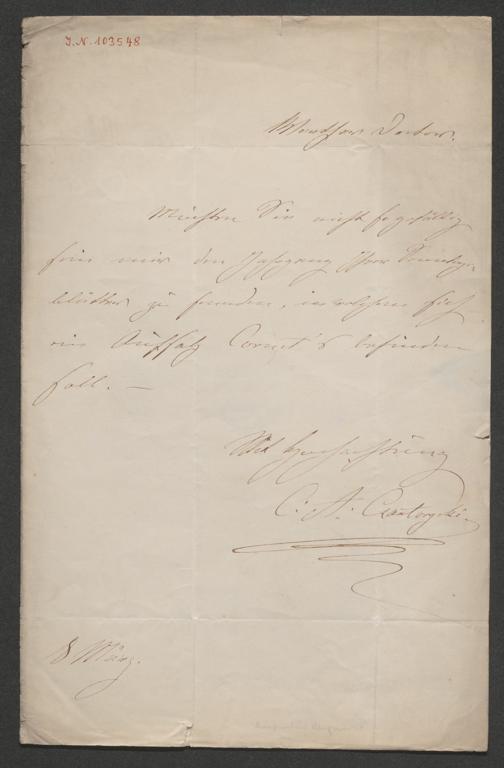 J.N. 103548
Werthser Doctor.
Möchten Sie nicht so gefällig
sein mir den Jahrgang Ihrer
blätter zu senden, in welchem sich
ein Aufsatz Cornet's befinden
soll. —
Mit Hochachtung
C. F. Czartoryski
8 März.